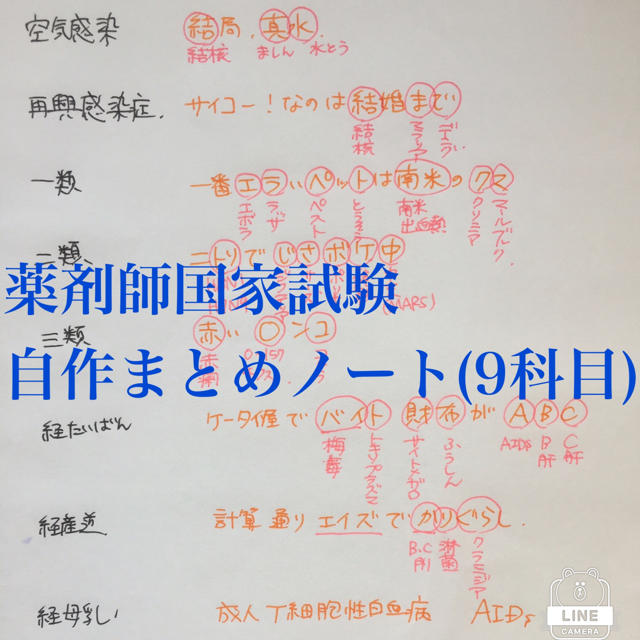 空気感染 結局、真水
結核 ましん 水とう
再興感染症. サイコー！なのは結婚まで
結核
一類 一番エラいペットは南米のクスマ
エボラ ラッサ ペスト 南米出血熱 クリミア マールブルク
二類、 ニトリでじさポケ中
(MARS)
薬剤師国家試験
三類 赤い〇ンコ
赤痢 O-157
自作まとめノート(9科目)
経たいばん ケータイ屋でバイト財布がABC
梅毒 トキソプラズマ サイトメガロ ふうしん AIDs B肝 C肝
経産道 計算通りエイズでがりぐらし.
B.C肝 淋菌 クラミジア
経母乳い 成人T細胞性白血病 AIDs
LINE
CAMERA